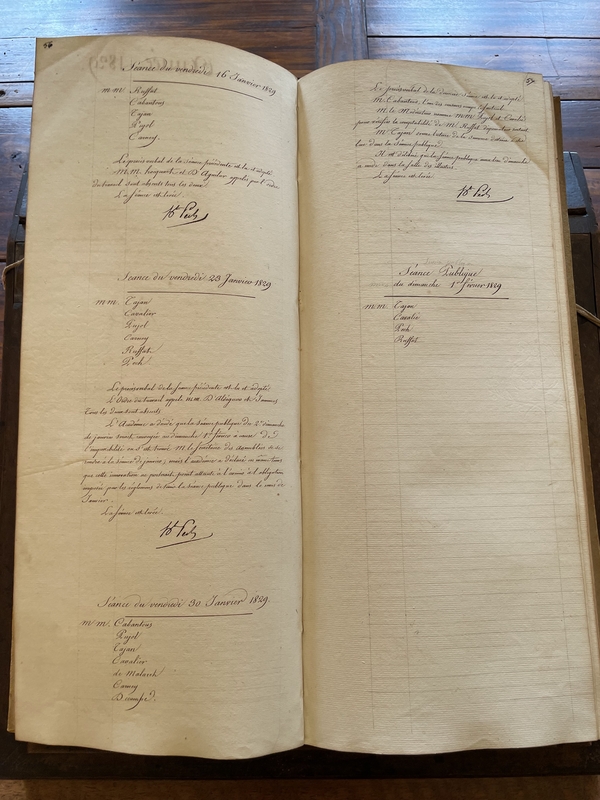 56
Séance du vendredi 16 Janvier 1829
M M. Ruffat
Cabantous
Tajan
Pujol
Carney
Le procès verbal de la séance précédente est lu et adopté
M. M. et D'Aguilar appelés par l'ordre
du travail sont absents tous les deux.
La séance est levée.
Pech
Séance du vendredi 23 Janvier 1829
M M. Tajan
Cavalier
Pujol
Carney
Ruffat
Pech
Le procès verbal de la séance précédente est lu et adopté
L'ordre du travail appele M.M. D'Aldéguier et
tous les deux sont absents
L'Académie a décidé que la séance publique du 2e dimanche
de janvier serait renvoyée au dimanche 1er février a cause de
l'impossibilité où s'est trouvé M. le Secrétaire des assemblées de se
rendre à la séance de janvier; mais l'académie a déclaré en même tems
que cette innovation ne porterait point atteinte à l'avenir à l'obligation
imposée par les réglemens de tenir la séance publique dans le mois de
Janvier.
La séance est levée.
Pech
Séance du vendredi 30 Janvier 1829.
M M. Cabantous
Pujol
Tajan
Cavalier
de Malaret
Carney
Decampe
57
Le procès verbal de la dernière séance est lu et adopté
M. Cabantous, l'un des mainteneurs
M. le Modérateur nomme M.M. Pujol et
pour vérifier la comptabilité de M. Ruffat
M. Tajan
lui dans la séance publique.
Il est décidé que la séance publique aura lieu dimanche
a midi dans la salle des Illustres.
La séance est levée
Pech
Séance Publique
du dimanche 1er février 1829
M M. Tajan
Cavalier
Pech
Ruffat